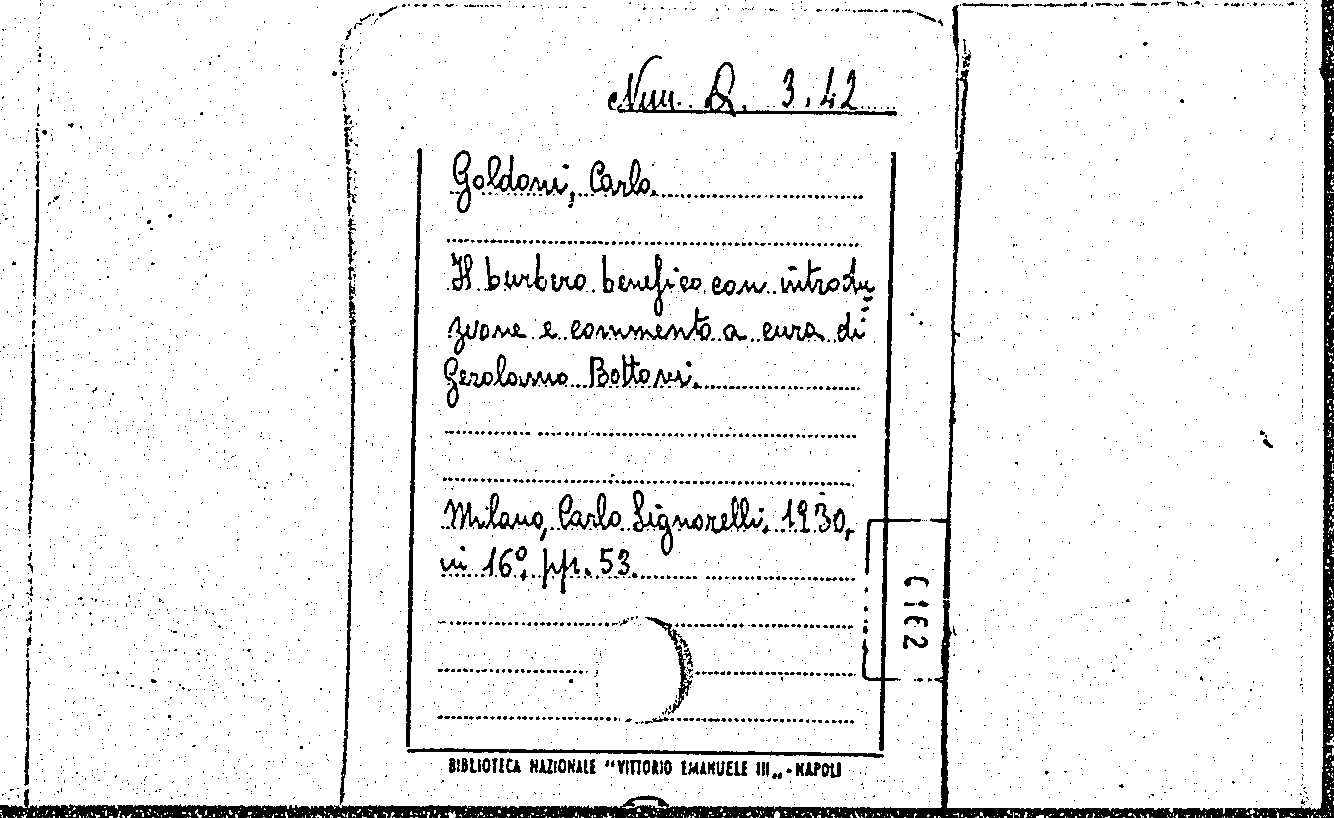 Num. Q. 3.42
Goldoni, Carlo.
Il burbero benefico con introdu=
zione e commento a cura di
Gerolamo Bottoni.
Milano, Carlo Signorelli, 1930,
in 16º, pp. 53.
C 1162
BIBLIOTECA NAZIONALE "VITTORIO EMANUELE III„ - NAPOLI